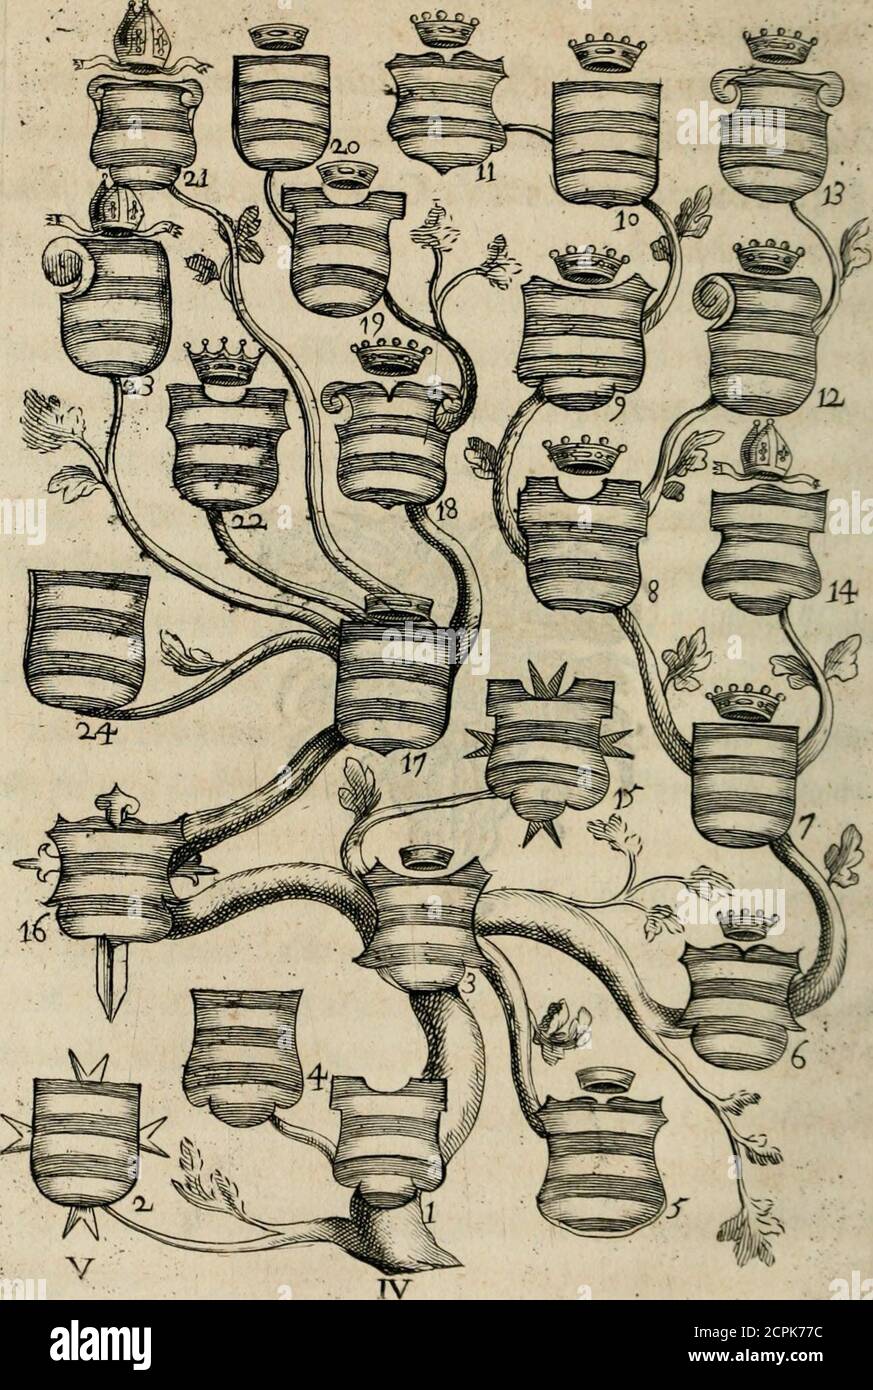 21
20
11
10
13
23
19
9
12
22
18
8
14
24
17
15
7
16
3
6
4
2
1
5
V
IV
alamy
Image ID: 2CPK77C
www.alamy.com